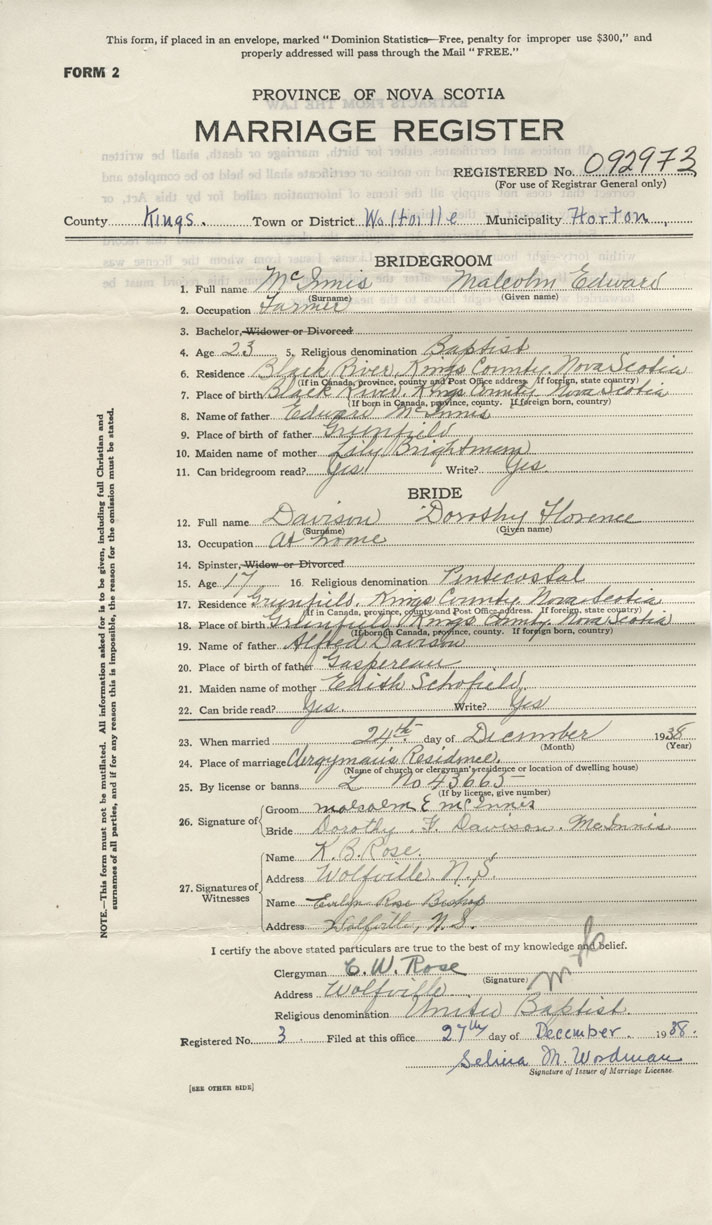 This form, if placed in an envelope, marked "Dominion Statistics—Free, penalty for improper use $300," and
properly addressed will pass through the Mail "FREE."
FORM 2
PROVINCE OF NOVA SCOTIA
MARRIAGE REGISTER
REGISTERED No. 092973
(For use of Registrar General only)
County Kings. Town or District Wolfville Municipality Horton
BRIDEGROOM
1. Full name McInnis Malcolm Edward
(Surname) (Given name)
2. Occupation Farmer
3. Bachelor, Widower or Divorced
4. Age 23 5. Religious denomination Baptist
6. Residence Black River, Kings County, Nova Scotia
(If in Canada, province, county and Post Office address. If foreign, state country)
7. Place of birth Black River, Kings County Nova Scotia
(If born in Canada, province, county. If foreign born, country)
8. Name of father Edward McInnis
9. Place of birth of father Greenfield
10. Maiden name of mother Lily Brightman
11. Can bridegroom read? Yes. Write? Yes.
BRIDE
12. Full name Davison Dorothy Florence
(Surname) (Given name)
13. Occupation at home
14. Spinster, Widow or Divorced
15. Age 17 16. Religious denomination Pentecostal
17. Residence Greenfield, Kings County, Nova Scotia
(If in Canada, province, county and Post Office address. If foreign, state country)
18. Place of birth Greenfield, Kings County, Nova Scotia
(If born in Canada, province, county. If foreign born, country)
19. Name of father Alfred Davison
20. Place of birth of father Gaspereau
21. Maiden name of mother Edith Schofield
22. Can bride read? Yes. Write? Yes
23. When married 24th day of December 1938
(Month) (Year)
24. Place of marriage Clergyman's Residence.
(Name of church or clergyman's residence or location of dwelling house)
25. By license or banns L No 43663
(If by license, give number)
26. Signature of Groom malcolm E mcInnis
Bride Dorothy F. Davison. McInnis
27. Signatures of Witnesses
Name K. B. Rose.
Address Wolfville, N.S.
Name Evelyn Rose Bishop
Address Wolfville, N.S.
I certify the above stated particulars are true to the best of my knowledge and belief.
Clergyman C. W. Rose
(Signature)
Address Wolfville
Religious denomination United Baptist.
Registered No. 3 Filed at this office 27th day of December. 1938.
Selina M. Wordman
Signature of Issuer of Marriage License.
[SEE OTHER SIDE]
NOTE.—This form must not be mutilated. All information asked for is to be given, including full Christian and
surnames of all parties, and if for any reason this is impossible, the reason for the omission must be stated.